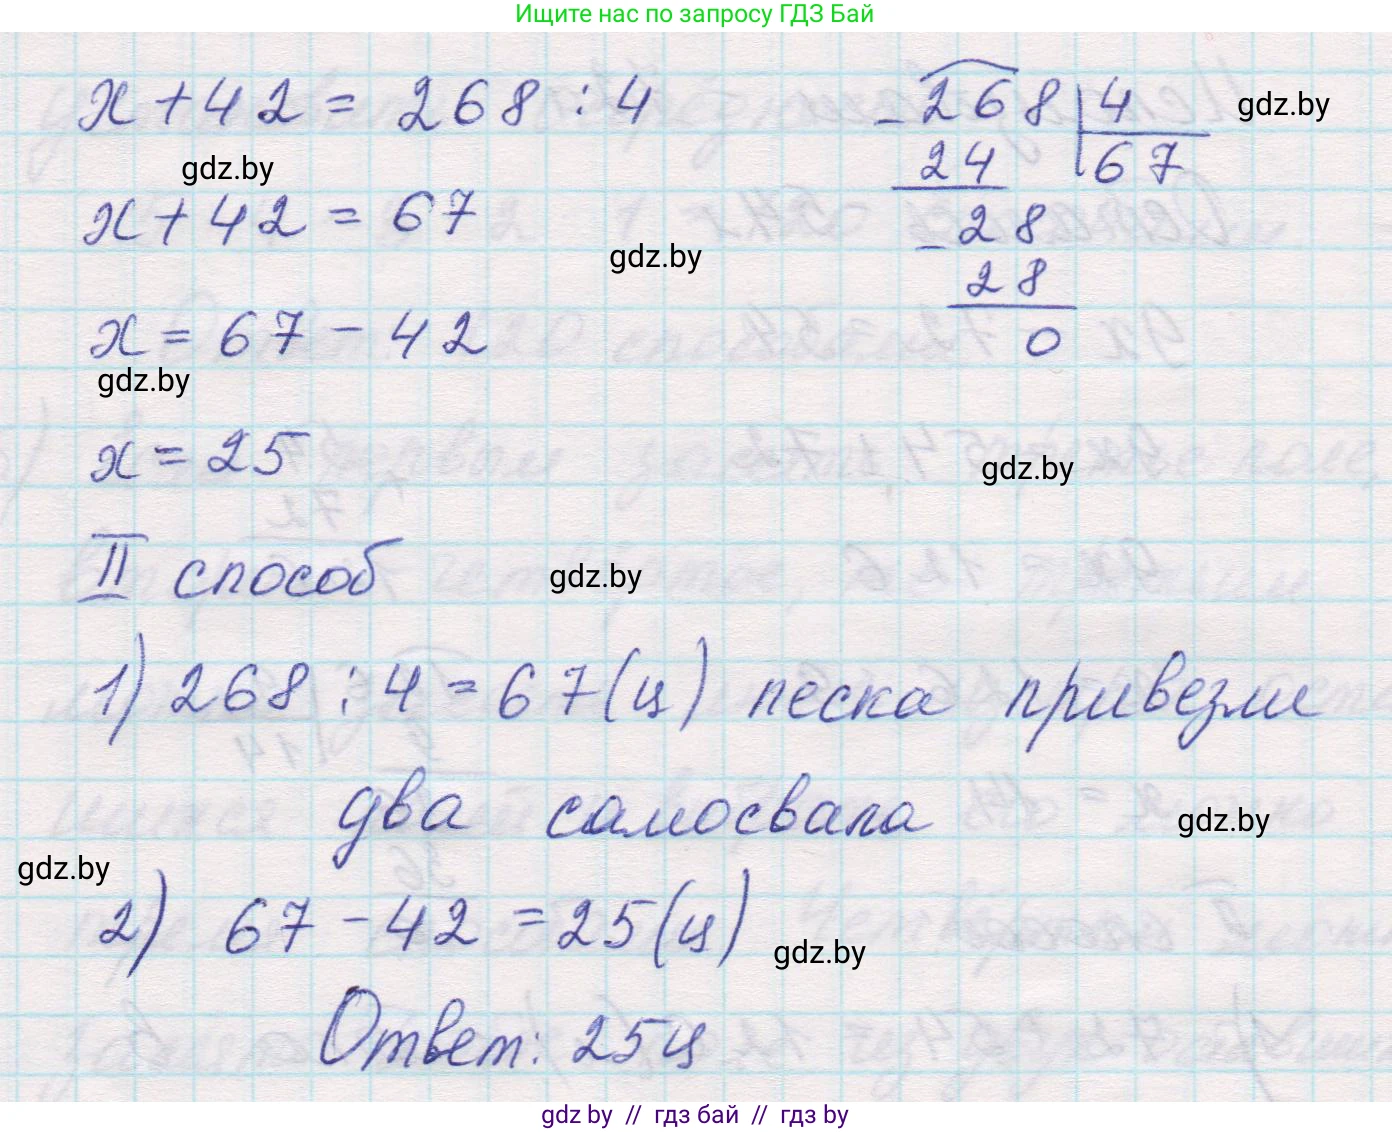 Ищите нас по запросу ГДЗ Бай
x + 42 = 268 : 4
x + 42 = 67
x = 67 - 42
x = 25
- 268 | 4
24 67
- 28
28
0
gdz.by
gdz.by
gdz.by
gdz.by
gdz.by
II способ
gdz.by
1) 268 : 4 = 67 (ц) песка привезли
два самосвала
gdz.by
gdz.by
2) 67 - 42 = 25 (ц)
gdz.by
Ответ: 25 ц
gdz by // гдз бай // гдз by